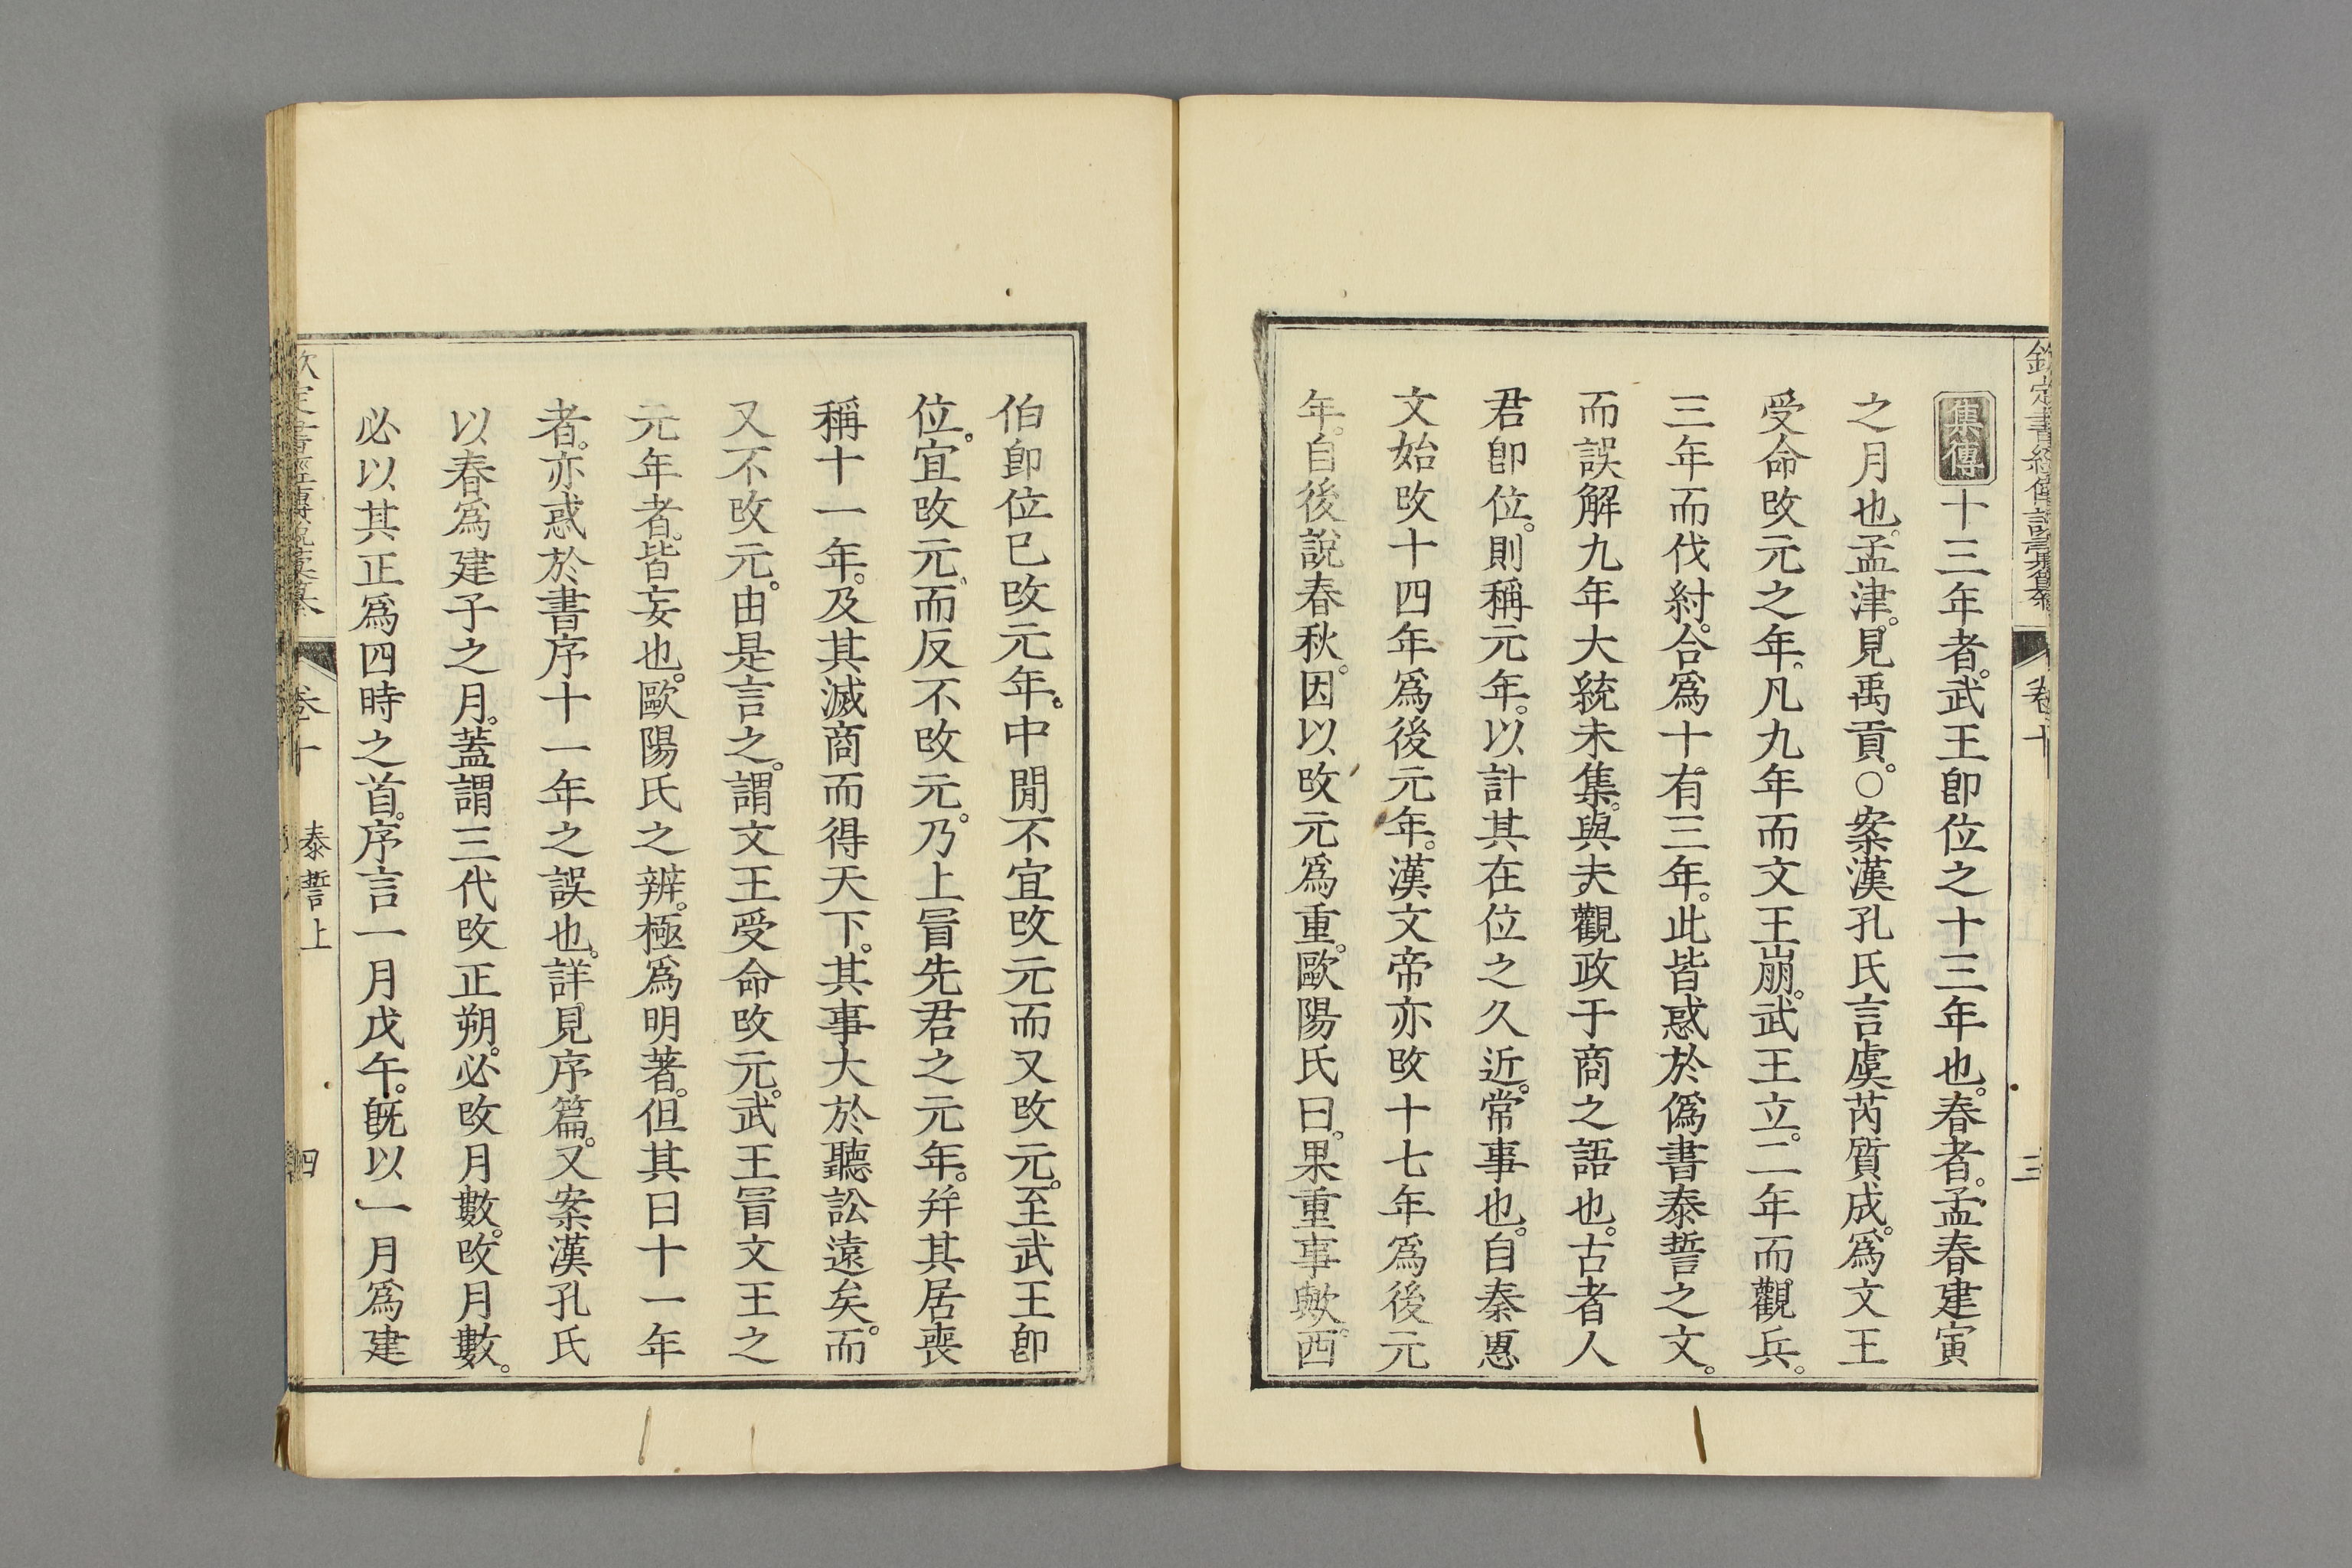 欽定書經傳說彙纂 卷十 三
集傳十三年者。武王卽位之十三年也。春者。孟春建寅
之月也。孟津。見禹貢。○案漢孔氏言虞芮質成。爲文王
受命改元之年。凡九年而文王崩。武王立。二年而觀兵。
三年而伐紂。合爲十有三年。此皆惑於僞書泰誓之文。
而誤解九年大統未集。與夫觀政于商之語也。古者人
君卽位。則稱元年。以計其在位之久近。常事也。自秦惠
文始改十四年爲後元年。漢文帝亦改十七年爲後元
年。自後說春秋。因以改元爲重。歐陽氏曰。果重事歟。西
伯卽位已改元年。中閒不宜改元而又改元。至武王卽
位。宜改元。而反不改元。乃上冒先君之元年。并其居喪
稱十一年。及其滅商而得天下。其事大於聽訟遠矣。而
又不改元。由是言之。謂文王受命改元。武王冒文王之
元年者。皆妄也。歐陽氏之辨。極爲明著。但其曰十一年
者。亦惑於書序十一年之誤也。詳見序篇。又案漢孔氏
以春爲建子之月。蓋謂三代改正朔。必改月數。改月數。
必以其正爲四時之首。序言一月戊午。旣以一月爲建
欽定書經傳說彙纂 卷十 泰誓上 四